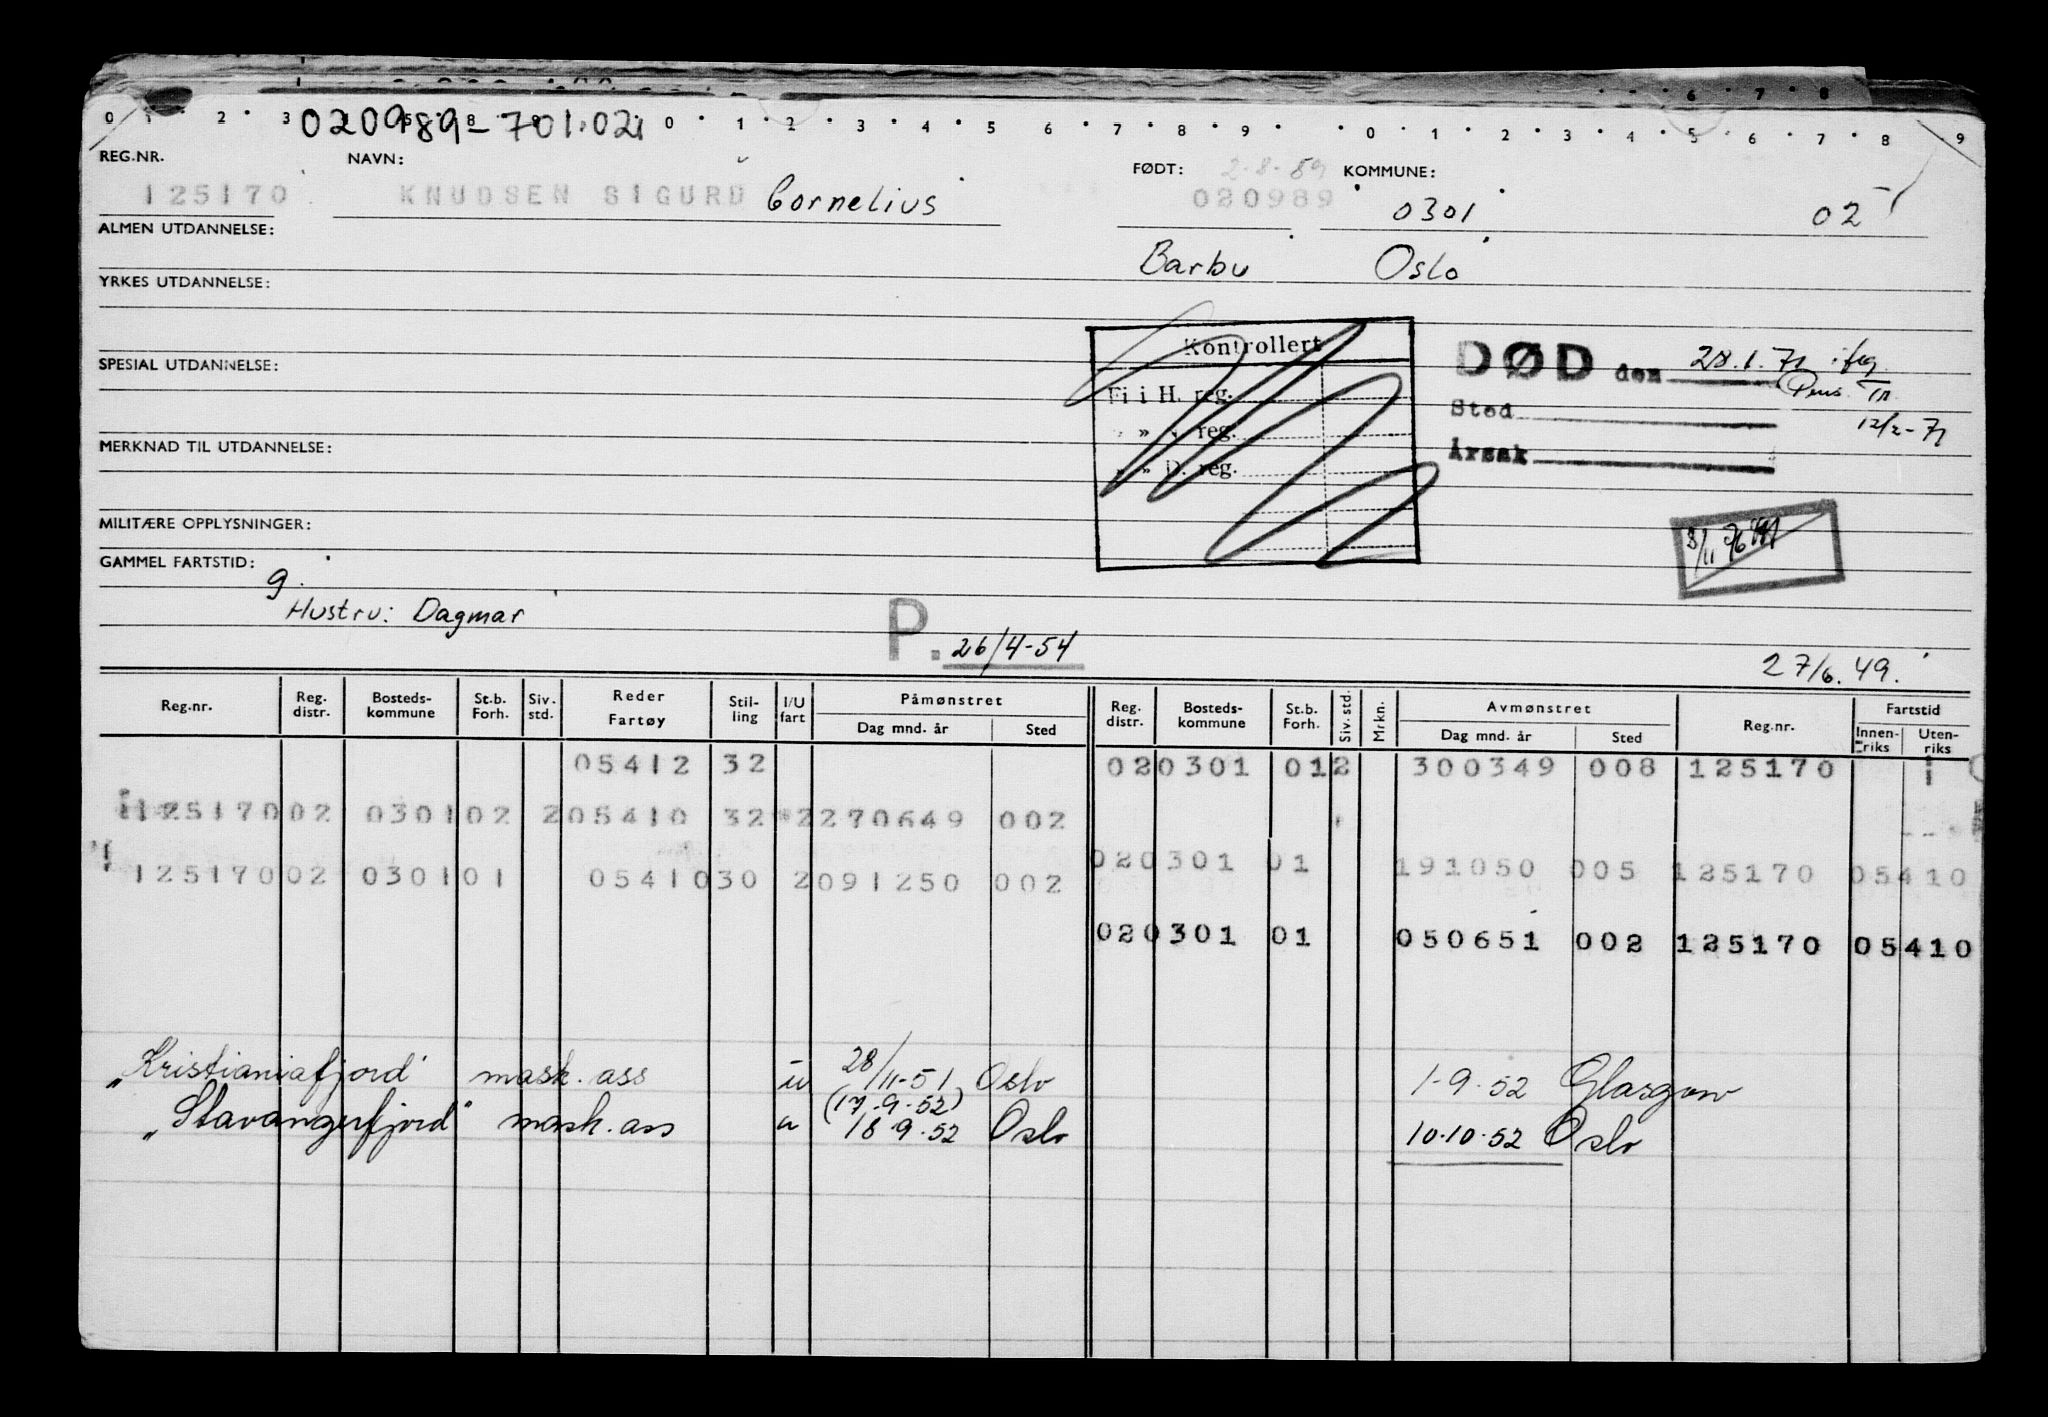 6 7 8
0 1 2 3 5 8 9 0 1 2 3 4 5 6 7 8 9 0 1 2 3 4 5 6 7 8 9
020989-701.02
REG.NR. NAVN: FØDT: 2-8-89 KOMMUNE:
125170 KNUDSEN SIGURD Cornelius 020989 0301 02
ALMEN UTDANNELSE:
Barbu Oslo
YRKES UTDANNELSE:
Kontrollert
DØD den 28.1.71
SPESIAL UTDANNELSE:
Fi i H. reg.
Pens. Tr.
Sted
12/2-71
» » reg.
MERKNAD TIL UTDANNELSE:
Årsak
» » D. reg.
MILITÆRE OPPLYSNINGER:
GAMMEL FARTSTID:
g.
Hustru: Dagmar
P. 26/4-54
27/6.49.
Reg.nr. Reg. distr. Bosteds-kommune St.b. Forh. Siv. std. Reder Fartøy Stil-ling I/U fart Påmønstret Dag mnd. år Sted Reg. distr. Bosteds-kommune St.b. Forh. Siv. std. Mrkn. Avmønstret Dag mnd. år Sted Reg.nr. Fartstid Innen-riks Uten-riks
05412 32 02 0301 01 2 300349 008 125170
125170 02 0301 02 2 05410 32 2 270649 002
02 0301 01 191050 005 125170 05410
125170 02 0301 01 05410 30 2 091250 002
02 0301 01 050651 002 125170 05410
„Kristianiafjord" mask. ass u 28/11-51 Oslo 1-9.52 Glasgow
(17.9.52)
„Stavangerfjord" mask. ass u 18.9.52 Oslo 10.10.52 Oslo